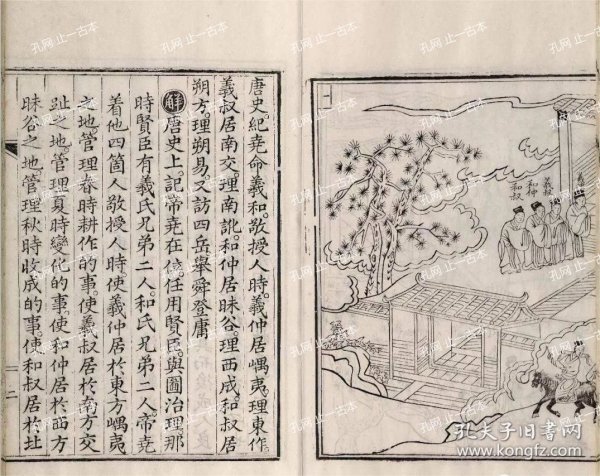 一
羲叔
和仲
和叔
唐史紀堯命羲和敬授人時羲仲居嵎夷理東作
羲叔居南交理南訛和仲居昧谷理西成和叔居
朔方理朔易又訪四岳舉舜登庸
解唐史上記帝堯在位任用賢臣與圖治理那
時賢臣有羲氏兄弟二人和氏兄弟二人帝堯
着他四箇人敬授人時使羲仲居於東方嵎夷
之地管理春時耕作的事使羲叔居於南方交
趾之地管理夏時變化的事使和仲居於西方
昧谷之地管理秋時收成的事使和叔居於北
二
孔网 止一古本
孔夫子旧书网
www.kongfz.com